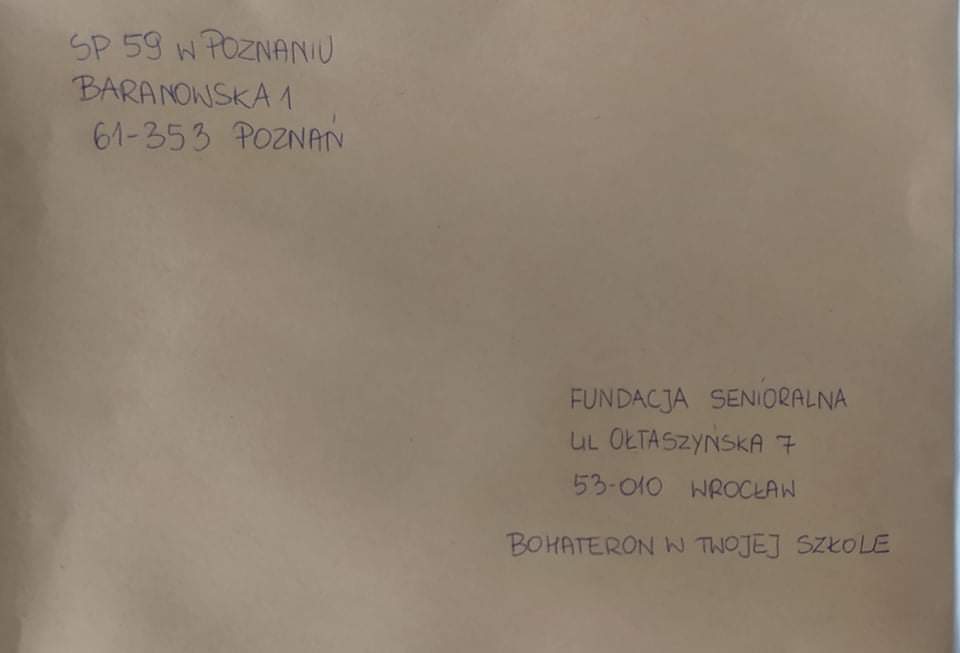 SP 59 W POZNANIU
BARANOWSKA 1
61-353 POZNAŃ
FUNDACJA SENIORALNA
UL OŁTASZYŃSKA 7
53-010 WROCŁAW
BOHATERON W TWOJEJ SZKOLE